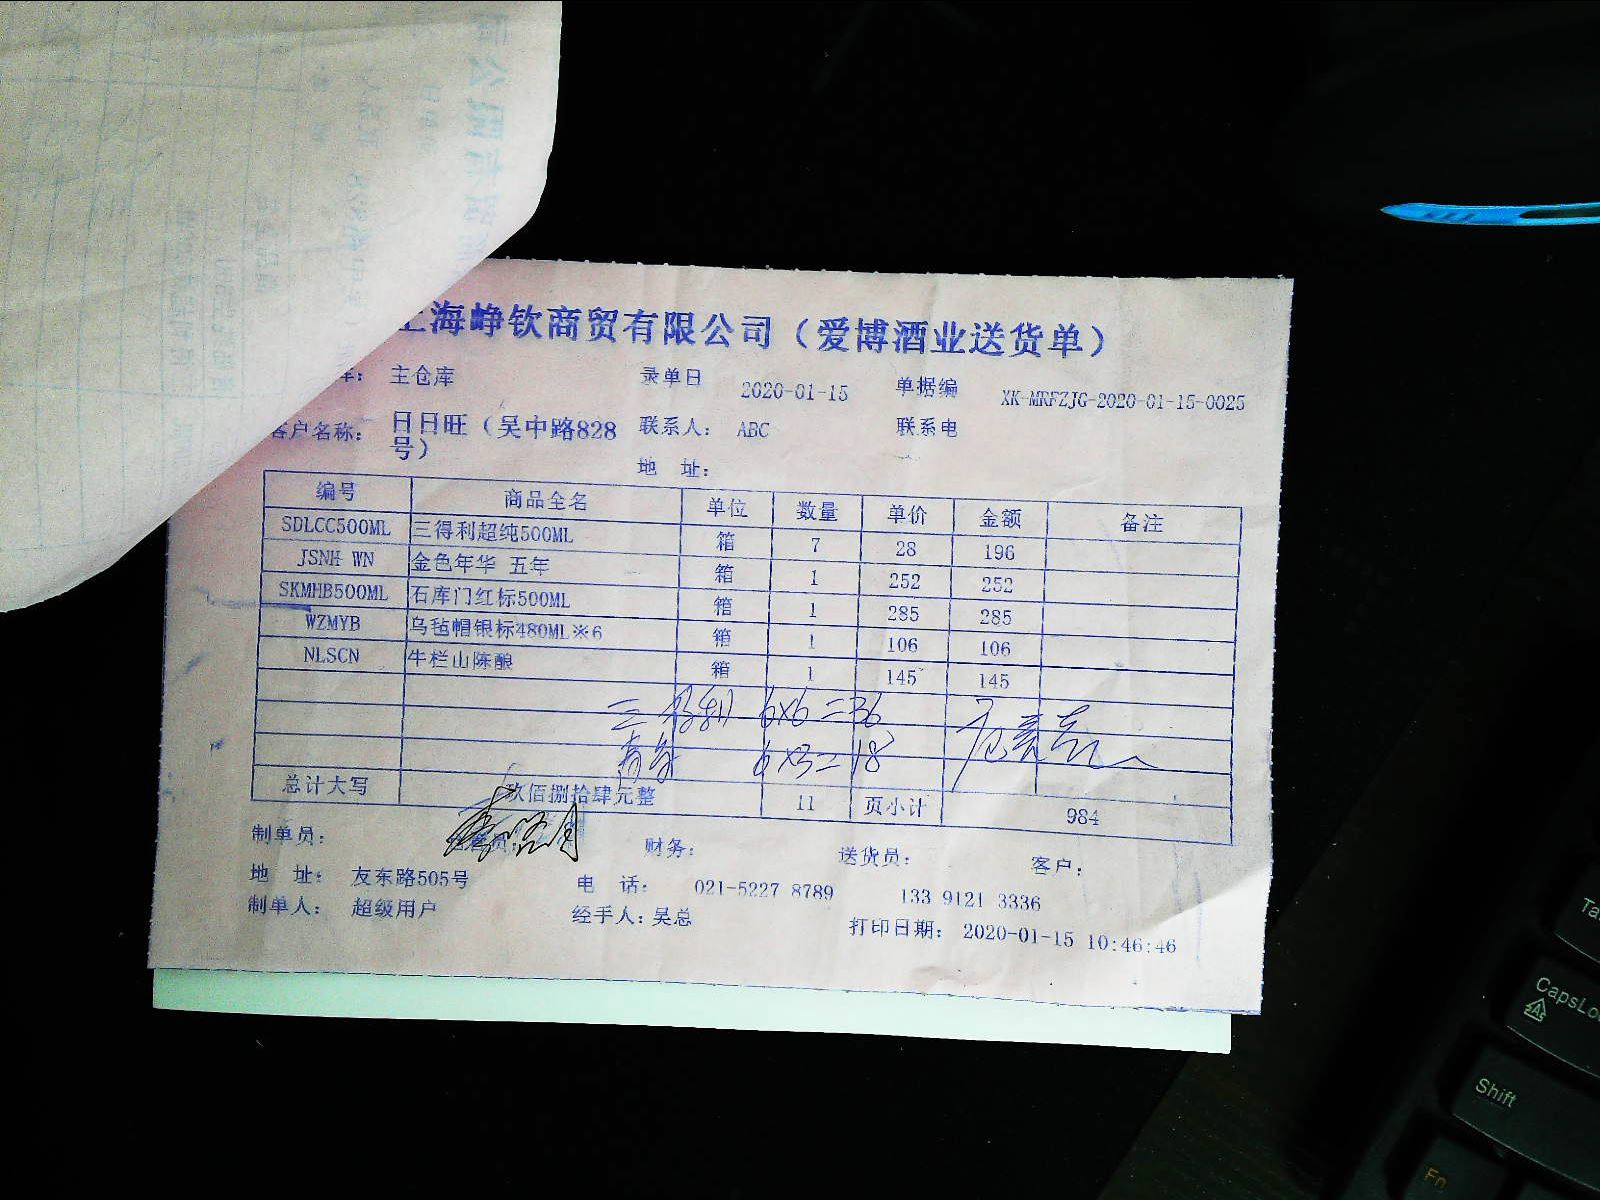 上海峥钦商贸有限公司（爱博酒业送货单）
库： 主仓库 录单日 2020-01-15 单据编 XK-MRFZJG-2020-01-15-0025
客户名称： 日日旺（吴中路828号） 联系人： ABC 联系电
地 址：
编号 商品全名 单位 数量 单价 金额 备注
SDLCC500ML 三得利超纯500ML 箱 7 28 196
JSNH WN 金色年华 五年 箱 1 252 252
SKMHB500ML 石库门红标500ML 箱 1 285 285
WZMYB 乌毡帽银标480ML※6 箱 1 106 106
NLSCN 牛栏山陈酿 箱 1 145 145
三得利 6x6=36
6x3=18
总计大写 玖佰捌拾肆元整 11 页小计 984
制单员： 财务： 送货员： 客户：
地 址： 友东路505号 电 话： 021-5227 8789 133 9121 3336
制单人： 超级用户 经手人：吴总 打印日期： 2020-01-15 10:46:46
CapsLo
Shift
Fn